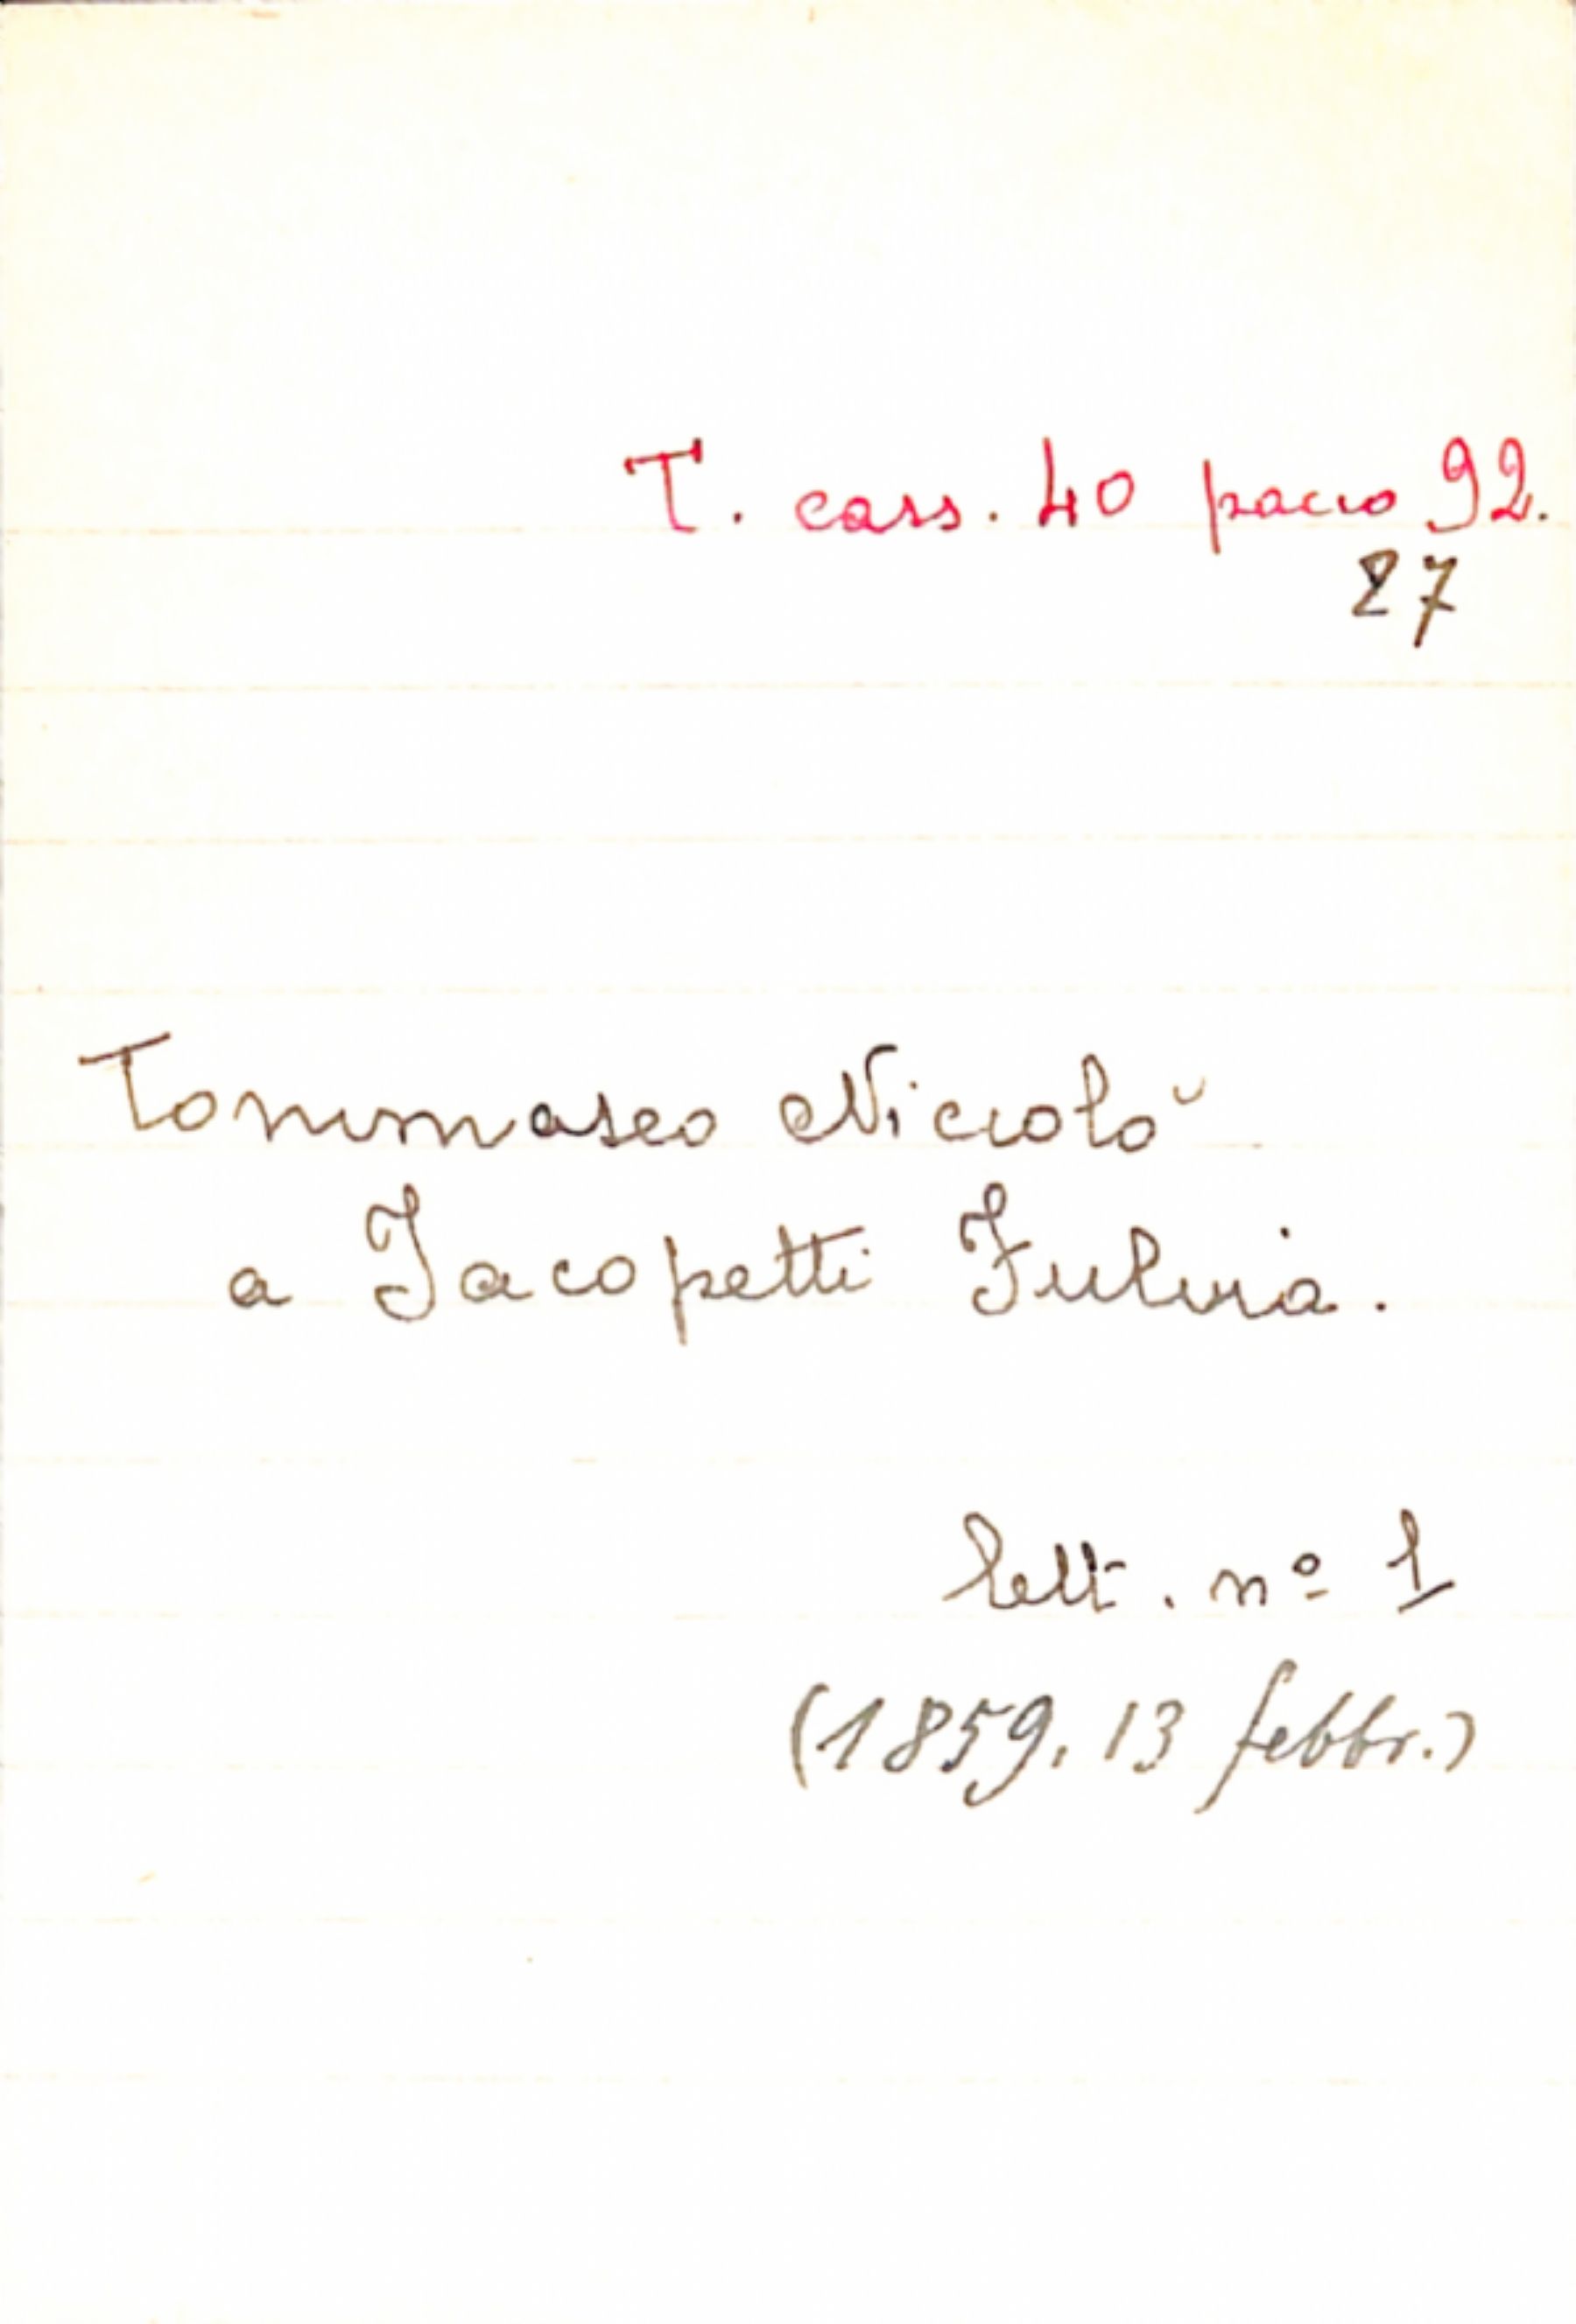 T. cass. 40 pacco 92.
27
Tommaseo Niccolò
a Jacopetti Fulvia.
lett. nº 1
(1859, 13 febbr.)